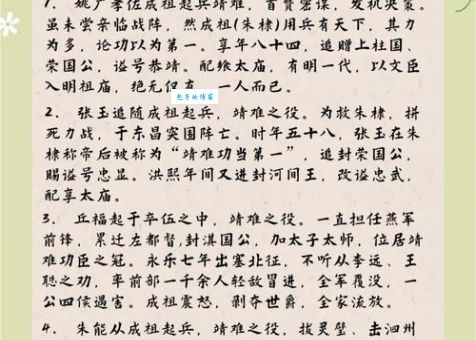 1、姚广孝佐成祖起兵靖难，首赞密谋，发机决策。
虽未尝亲临战阵，然成祖(朱棣)用兵有天下，其力
为多，论功以为第一。享年八十四，追赠上柱国、
荣国公，谥号恭靖。配飨太庙，有明一代，以文臣
入明祖庙，绝无仅有，一人而已。
包子的博客
2、张玉追随成祖起兵，靖难之役。为救朱棣，拼
死力战，于东昌突围阵亡。时年五十八，张玉在朱
棣称帝后被称为“靖难功当第一”，追封荣国公，
赐谥号忠显。洪熙年间又进封河间王，改谥忠武，
配享太庙。
3、丘福起于卒伍之中，靖难之役。一直担任燕军
前锋，累迁左都督,封淇国公，加太子太师，位居靖
难功臣之冠。永乐七年出塞北征，不听从李远、王
聪之劝，率前部一千余人轻敌冒进，全军覆没，一
公四侯遇害。成祖震怒，剥夺世爵，全家流放。
4、朱能从成祖起兵，靖难之役，拔灵璧、击泗州